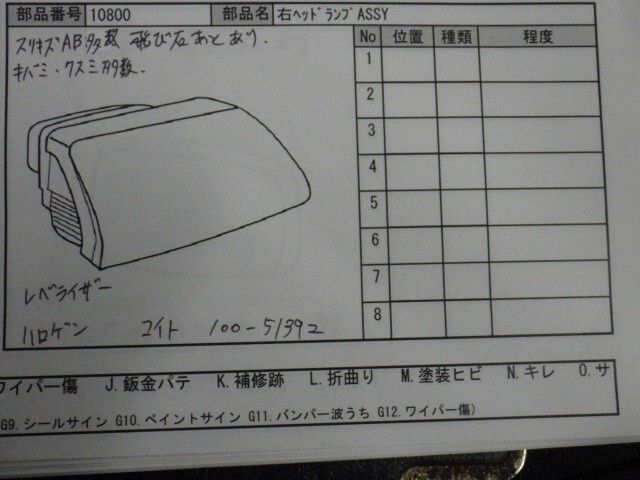 部品番号 10800 部品名 右ヘッドランプASSY
スリキズAB多数 飛び石あとあり.
キバミ、クスミ多数.
No 位置 種類 程度
1
2
3
4
5
6
7
8
レベライザー
ハロゲン コイト 100-51392
ワイパー傷 J.鈑金パテ K.補修跡 L.折曲り M.塗装ヒビ N.キレ O.サ
G9.シールサイン G10.ペイントサイン G11.バンパー波うち G12.ワイパー傷)